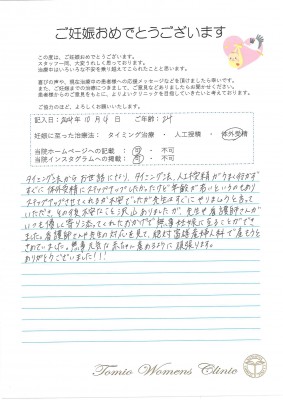 ご妊娠おめでとうございます
この度は、ご妊娠おめでとうございます。
スタッフ一同、大変うれしく思っております。
治療中はいろいろな不安を乗り越えてこられたことと思います。
喜びの声や、現在治療中の患者様への応援メッセージなどを頂けましたら幸いです。
また、ご妊娠までの治療につきまして、ご意見などありましたらお聞かせください。
患者様からのご意見をもとに、よりよいクリニックを目指していきたいと考えております。
ご協力のほど、よろしくお願いいたします。
記入日:2024年10月4日 ご年齢:34
妊娠に至った治療法: タイミング治療 ・ 人工授精 ・ 体外受精
当院ホームページへの記載 : 可 ・ 不可
当院インスタグラムへの掲載 : 可 ・ 不可
タイミング法からお世話になり、タイミング法、人工授精がうまく行かず
すぐに体外受精にステップアップしたかったけど年齢が若いというのもあり
ステップアップさせてくれるか不安でしたが先生はすぐにやりましょうと言って
いただき、その後不安なこと沢山ありましたが、先生や看護師さんが
いつも優しく寄り添ってくれたおかげで無事妊娠に至ることができ
ました。看護師さんや先生の対応を見て、絶対富雄産婦人科で産もうと
きめていました。無事元気な赤ちゃん産めるように頑張ります。
ありがとうございました!!!
Tomio Womens Clinic